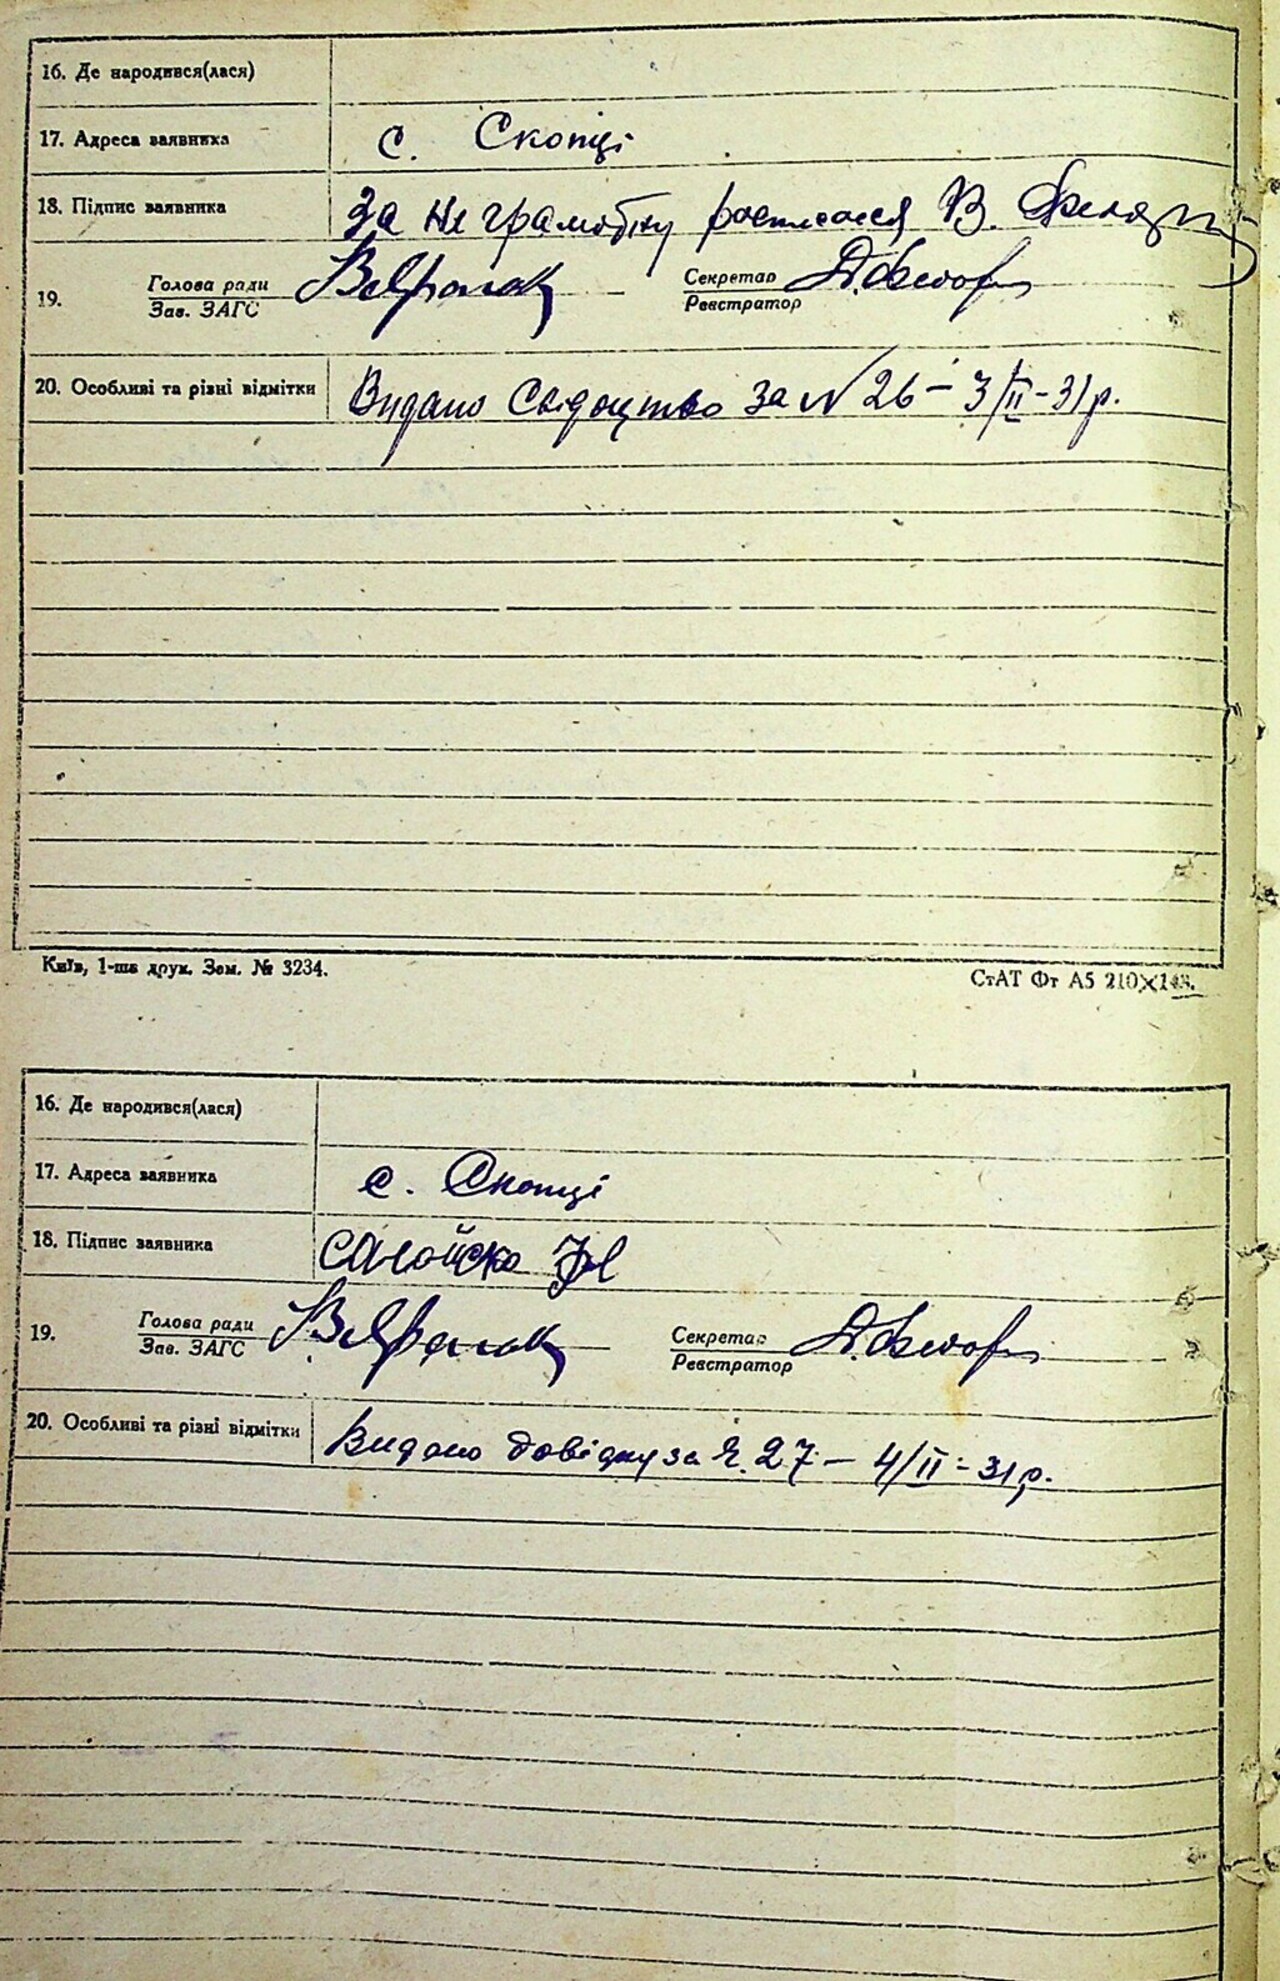 16. Де народився(лася)
17. Адреса заявника с. Скопці
18. Підпис заявника За не грамотну росписався В.
19. Голова ради Секретар
Зав. ЗАГС Реєстратор
20. Особливі та різні відмітки Видано Свідоцтво за № 26 – 3/II – 31 р.
Київ, 1-ша друк. Зам. № 3234.
СтАТ Фт А5 210×148.
16. Де народився(лася)
17. Адреса заявника с. Скопці
18. Підпис заявника
19. Голова ради Секретар
Зав. ЗАГС Реєстратор
20. Особливі та різні відмітки Видано довідку за Ч. 27 – 4/II – 31 р.